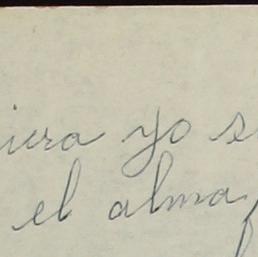 iera yo s
el alma,